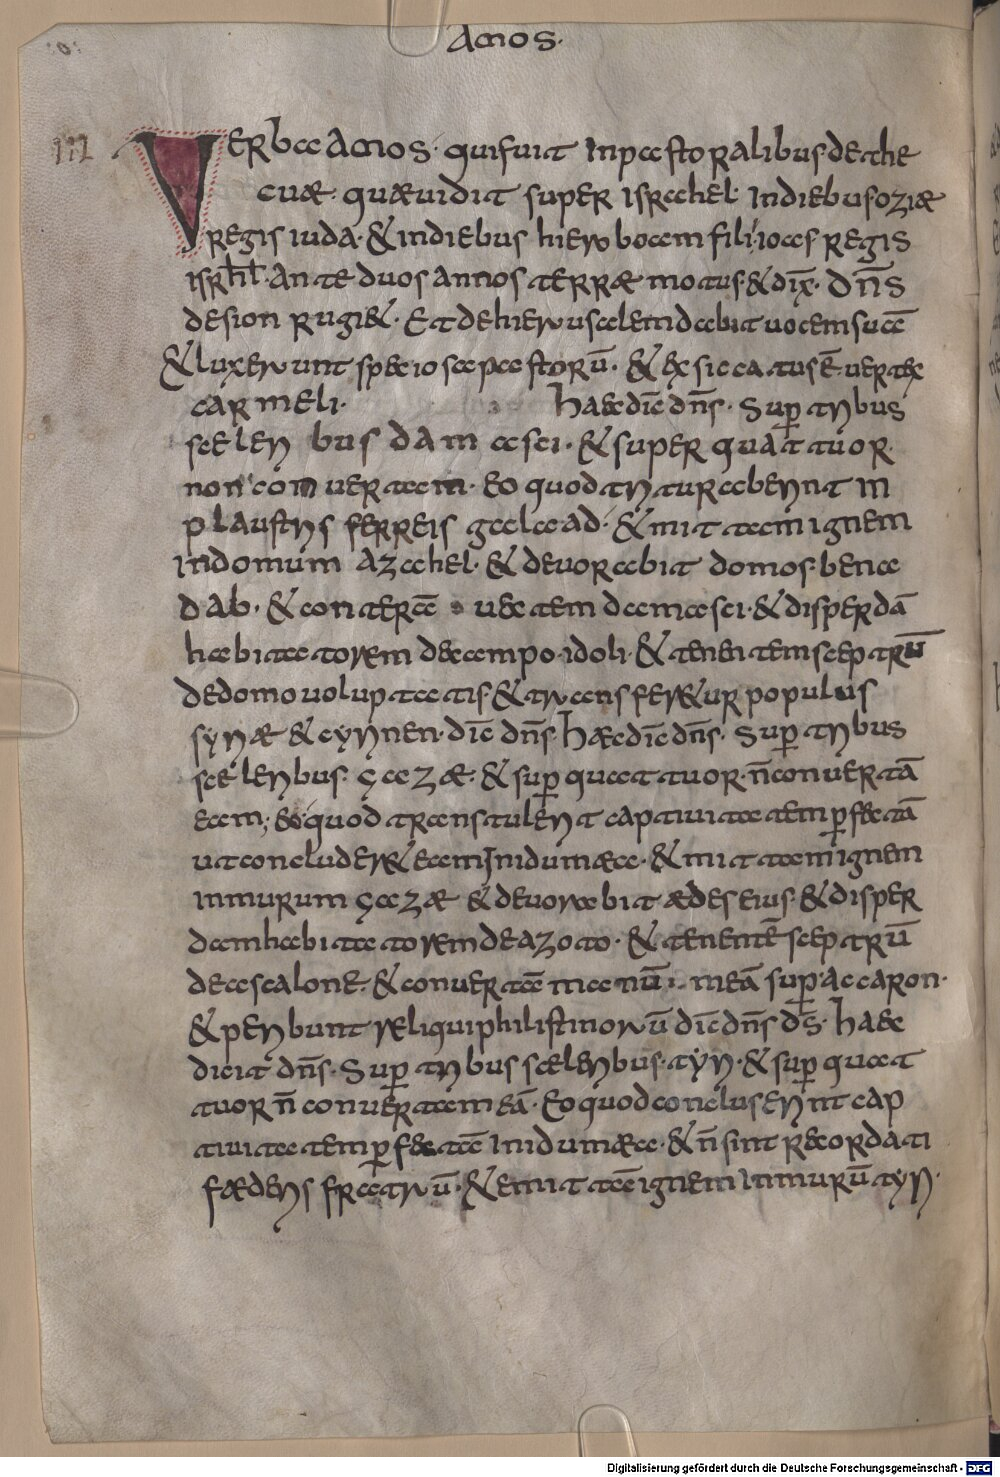 Amos.
III
Verba amos. qui fuit In pastoralibus de the
cuæ. quæ uidit super israhel. In diebus oziæ
regis iuda. & in diebus hieroboam filii ioas regis
isrhl. Ante duos annos terræ motus. & dix̄. dn̄s
de sion rugi&. Et de hierusalem dabit uocem suā
& luxerunt speciosa pastorū. & exsiccatus ē. uertex
carmeli. Haec diē dn̄s. Sup tribus
sceleribus damasci. & super quattuor
non conuertam. Eo quod triturauerint in
plaustris ferreis galaad. & mittam ignem
in domum azahel. & deuorabit domos bena
dab. & conterā uectem damasci. & disperdā
habitatorem de campo idoli. & tenentem sceptrū
de domo uoluptatis. & transfer&ur populus
syriæ & cyrinen. diē dn̄s. Haec diē dn̄s. Sup tribus
sceleribus. gazæ. & sup quattuor. n̄ conuertā
eam; eo quod transtulerit captiuitatem perfectā
ut concluder& eam In idumæa. & mittam ignem
in murum gazæ & deuorabit ædes eius. & disper
dam habitatorem de azoto. & tenentē sceptrū
de ascalone. & conuertā manū meā sup accaron.
& peribunt reliqui philistinorū diē dn̄s ds̄. Haec
dicit dn̄s. Sup tribus sceleribus. tyri. & sup quat
tuor n̄ conuertam eā. Eo quod concluserint cap
tiuitatem perfectā In idumæa. & n̄ sint recordati
fæderis fratrū. & emittā ignem In murū tyri.
Digitalisierung gefördert durch die Deutsche Forschungsgemeinschaft - DFG